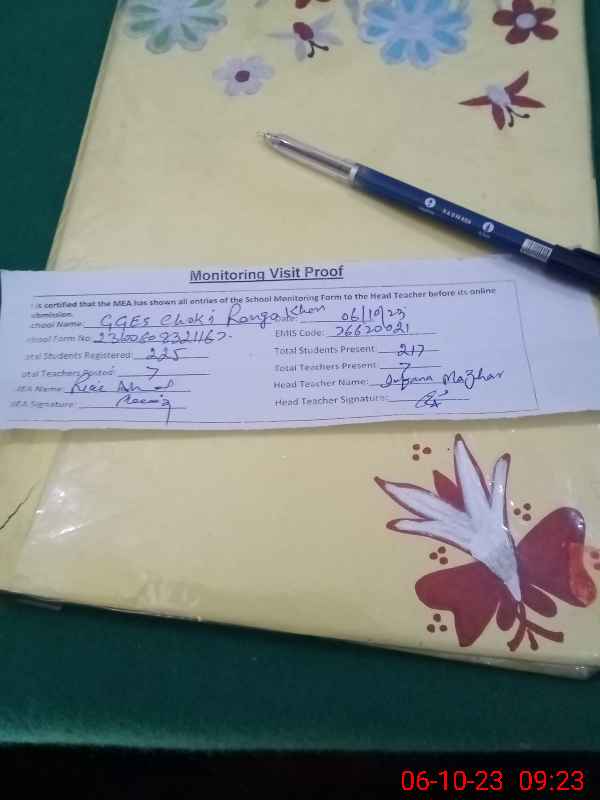 Monitoring Visit Proof
is certified that the MEA has shown all entries of the School Monitoring Form to the Head Teacher before its online
bmission.
chool Name: GGES Chak Ranga Khan ate: 06/10/23
chool Form No EMIS Code:
otal Students Registered: 225 Total Students Present: 217
otal Teachers Posted: 7 Total Teachers Present: 7
MEA Name: Head Teacher Name: Mazhar
MEA Signature: Head Teacher Signature:
06-10-23 09:23